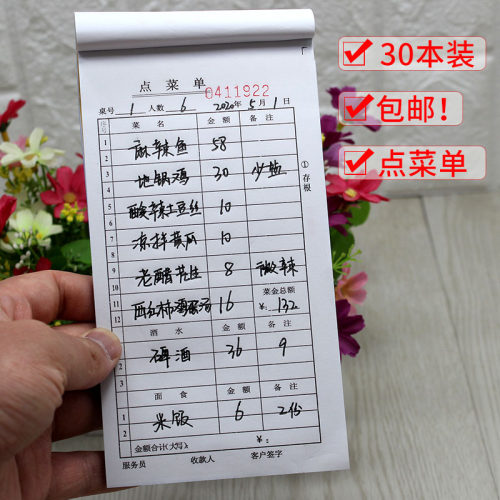 点菜单
0411922
桌号 1 人数 6 2020年5月1日
菜名 金额 备注
1 麻辣鱼 58
2
3 地锅鸡 30 少盐
4
5 酸辣土豆丝 10
6
7 凉拌黄瓜 10
8
9
10 老醋花生 8 酸辣
11 菜金总额
12 西红柿鸡蛋汤 16 ¥: 132
酒水 金额 备注
1
2 啤酒 36 9
3
面食 金额 备注
1
2 米饭 6 2份
金额合计(大写): ¥:
服务员 收款人 客户签字
①存根
30本装
包邮!
点菜单